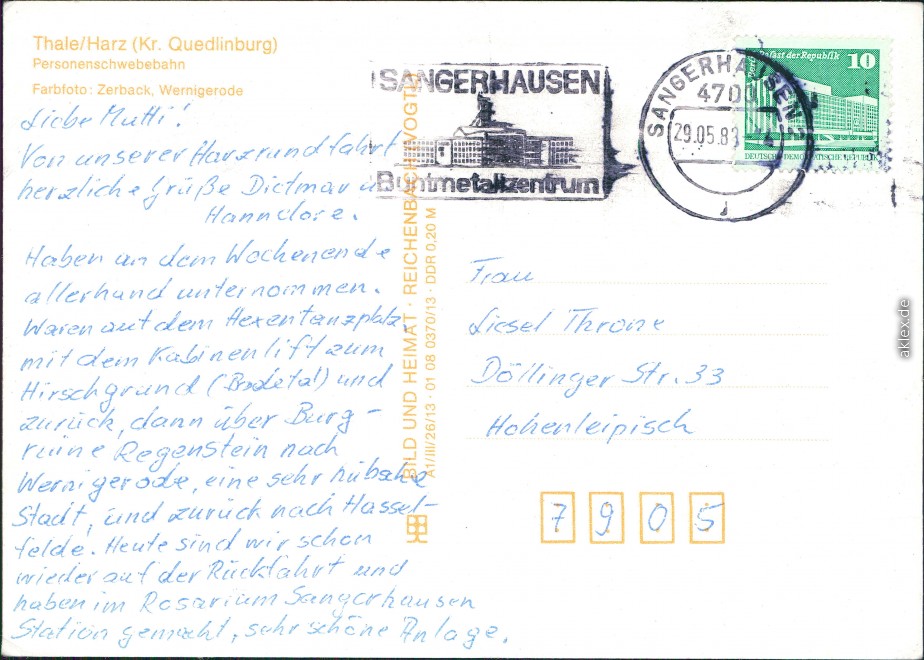 Thale/Harz (Kr. Quedlinburg)
Personenschwebebahn
Farbfoto: Zerback, Wernigerode
Liebe Mutti!
Von unserer Harzrundfahrt
herzliche Grüße Dietmar u
Hannelore.
Haben an dem Wochenende
allerhand unternommen.
Waren auf dem Hexentanzplatz,
mit dem Kabinenlift zum
Hirschgrund (Bodetal) und
zurück, dann über Burg-
ruine Regenstein nach
Wernigerode, eine sehr hübsche
Stadt, und zurück nach Hassel-
felde. Heute sind wir schon
wieder auf der Rückfahrt und
haben im Rosarium Sangerhausen
Station gemacht, sehr schöne Anlage.
BILD UND HEIMAT · REICHENBACH (VOGTL)
A1/III/26/13 · 01 08 0370/13 · DDR 0,20 M
SANGERHAUSEN
Buntmetallzentrum
SANGERHAUSEN
4700
29.05.83
Palast der Republik
10
DEUTSCHE DEMOKRATISCHE REPUBLIK
Frau
Liesel Throne
Döllinger Str. 33
Hohenleipisch
7905
aklex.de